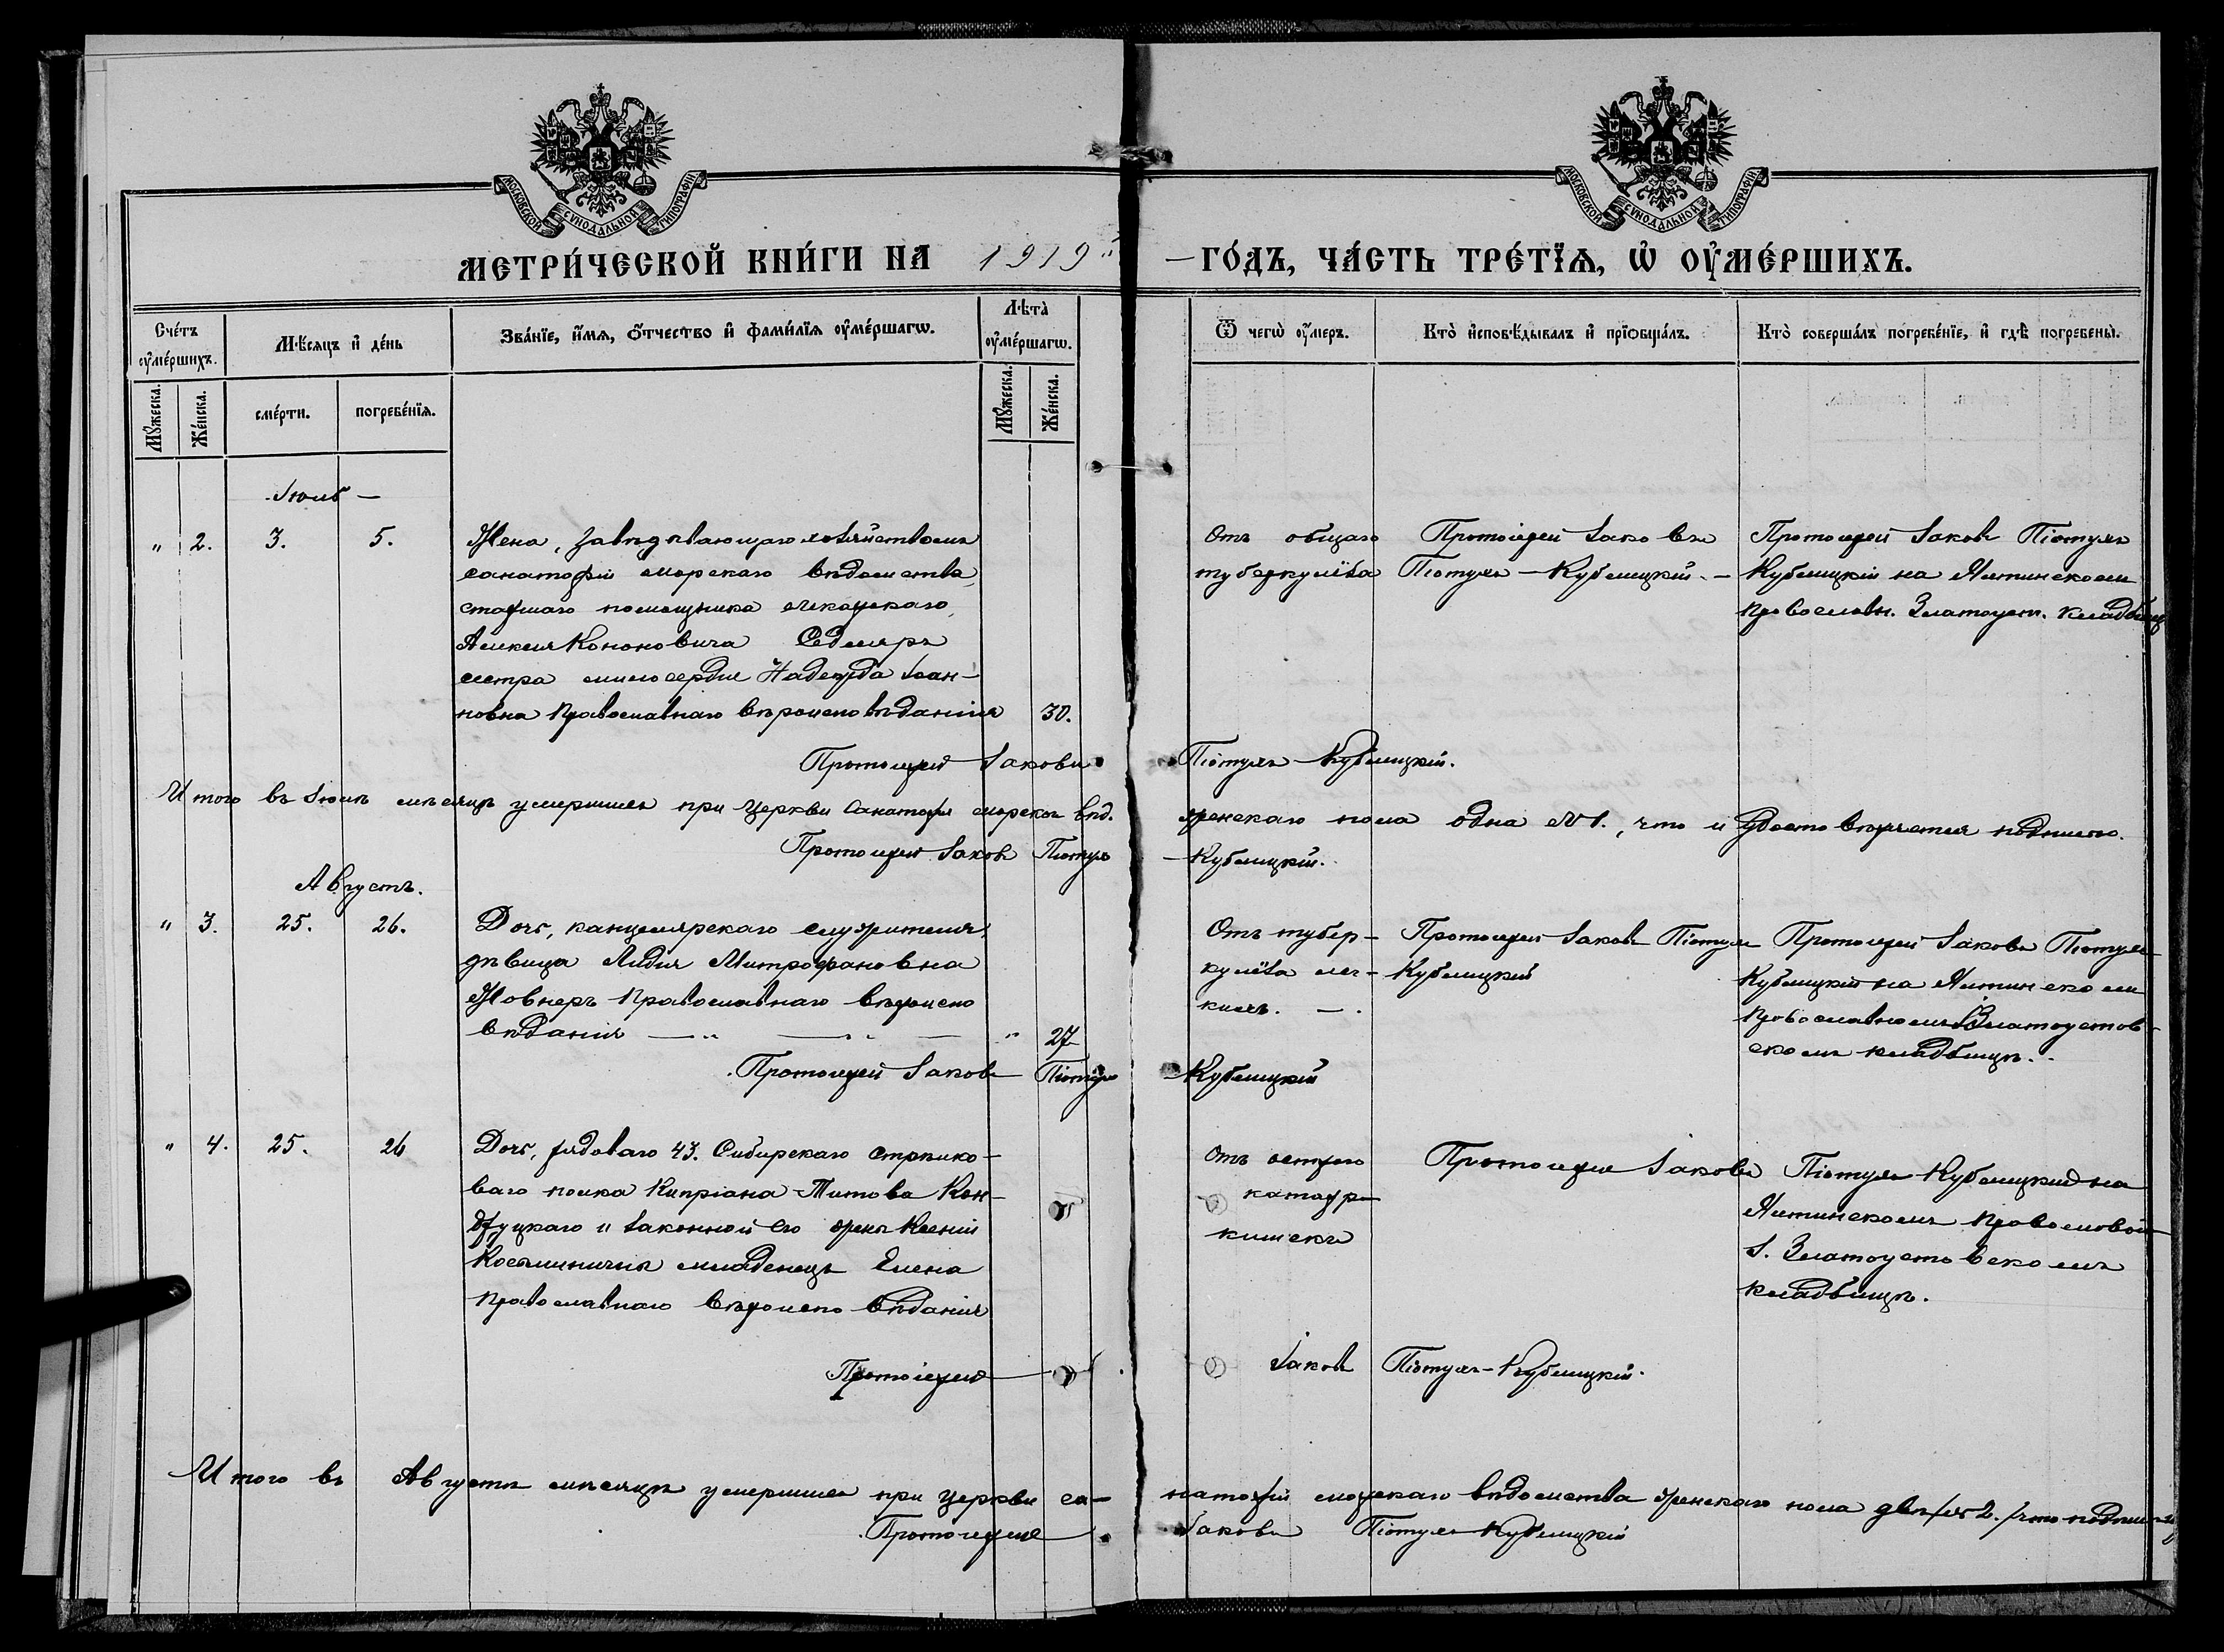 МОСКОВСКОЙ СѴНОДАЛЬНОЙ ТИПОГРАФІИ
МОСКОВСКОЙ СѴНОДАЛЬНОЙ ТИПОГРАФІИ
МЕТРИ́ЧЕСКОЙ КНИ́ГИ НА 1919 ГО́ДЪ, ЧА́СТЬ ТРЕ́ТЇѦ, Ѡ҆ ОУ҆МЕ́РШИХЪ.
Сче́тъ оу҆ме́ршихъ.
Мѣ́сяцъ и҆ де́нь
Зва́нїе, и҆́мѧ, ѻ҆́тчество и҆ фами́лїѧ оу҆ме́ршагѡ.
Лѣта̀ оу҆ме́ршагѡ.
Ѿ чегѡ̀ оу҆́меръ.
Кто̀ и҆сповѣ́дывалъ и҆ прїѡбща́лъ.
Кто̀ соверша́лъ погребе́нїе, и҆ гдѣ̀ погребены̀.
Мꙋ́жеска.
Же́нска.
сме́рти.
погребе́нїѧ.
Мꙋ́жеска.
Же́нска.
Іюль —
" 2. 3. 5.
Жена, завѣдывающаго хозяйствомъ
санаторіи морскаго вѣдомства,
старшаго помощника лекарскаго,
Алексѧ Кононовича Седляръ
сестра милосердія Надежда Іоан-
новна православнаго вѣроисповѣданія 30.
Отъ общаго
туберкулёза
Протоіерей Іаковъ
Піотухъ-Кублицкій. —
Протоіерей Іаковъ Піотухъ
Кублицкій на Ялтинскомъ
Православн. Златоуст. кладбищѣ
Протоіерей Іаковъ Піотухъ-Кублицкій.
Итого въ Іюлѣ мѣсяцѣ умершихъ при церкви санаторіи морског вѣд. женскаго пола одна № 1., что и удостовѣряется подписью.
Протоіерей Іаковъ Піотухъ-Кублицкій.
Августъ.
" 3. 25. 26.
Дочь, канцелярскаго служителя,
дѣвица Лидія Митрофановна
Жовнеръ православнаго вѣроиспо
вѣданія — " — " — " 27
Отъ тубер-
кулёза лег-
кихъ. — .
Протоіерей Іаковъ Піотухъ
Кублицкій
Протоіерей Іаковъ Піотухъ
Кублицкій на Ялтинскомъ
православномъ Златоустов-
скомъ кладбищѣ.
Протоіерей Іаковъ Піотухъ-Кублицкій
" 4. 25. 26
Дочь, рядоваго 43. Сибирскаго стрѣлко-
ваго полка Кипріана Титова Кон-
друцкаго и законной его жены Ксеніи
младенецъ Елена
православнаго вѣроисповѣданія
Отъ остраго
катарра
кишекъ
Протоіерей Іаковъ Піотухъ Кублицкій на
Ялтинскомъ
І. Златоустовскомъ
кладбищѣ.
Протоіерей Іаковъ Піотухъ-Кублицкій.
Итого въ Августѣ мѣсяцѣ умершихъ при церкви са-наторіи морскаго вѣдомства женскаго пола двѣ/№ 2./что
Протоіерей Іаковъ Піотухъ Кублицкій